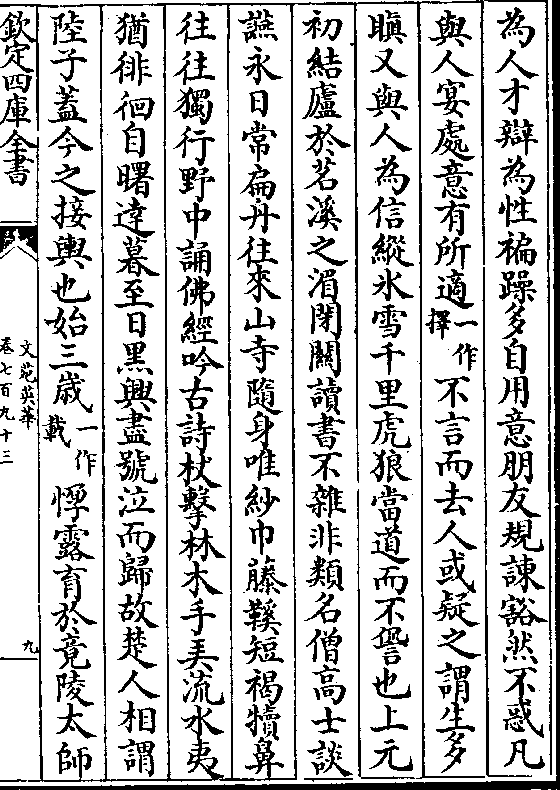 為人才辯為性褊躁多自用意朋友規諫豁然不惑凡
與人宴處意有所適一作擇不言而去人或疑之謂生多
瞋又與人為信縱氷雪千里虎狼當道而不愆也上元
初結廬於苕溪之湄閉關讀書不雜非類名僧高士談
讌永日常扁舟往來山寺隨身唯紗巾藤鞵短褐犢鼻
往往獨行野中誦佛經吟古詩杖擊林木手弄流水夷
猶徘徊自曙達暮至日黑興盡號泣而歸故楚人相謂
陸子蓋今之接輿也始三歳一作載惸露育於竟陵太師
欽定四庫全書
文苑英華
卷七百九十三
九